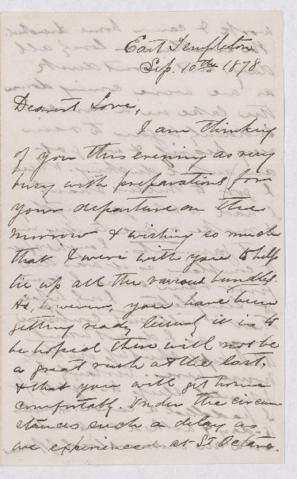 East Templeton
Sep. 10th 1878
Dearest Love,
I am thinking
of you this evening as very
busy with preparations for
your departure on the
morrow & wishing so much
that I were with you to help
tie up all the various bundles.
As, however, you have been
getting ready leisurely it is to
be hoped there will not be
a great rush at the last,
& that you will get home
comfortably. Under the circum
stances such a delay as
we experienced at St